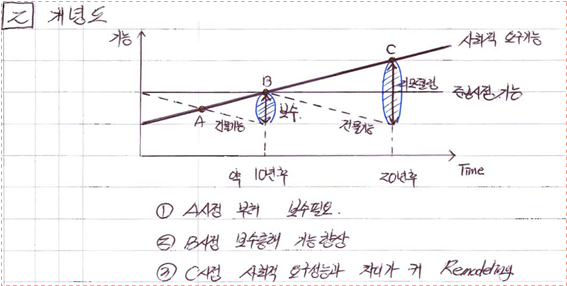 2 개념도
기능
사회적 요구기능
C
B
리모델링
준공시점 기능
A
건물기능
보수
건물기능
약 10년후
20년후
Time
① A시점 부터 보수필요.
② B시점 보수통해 기능향상
③ C시점 사회적 요구성능과 차이가 커 Remodeling